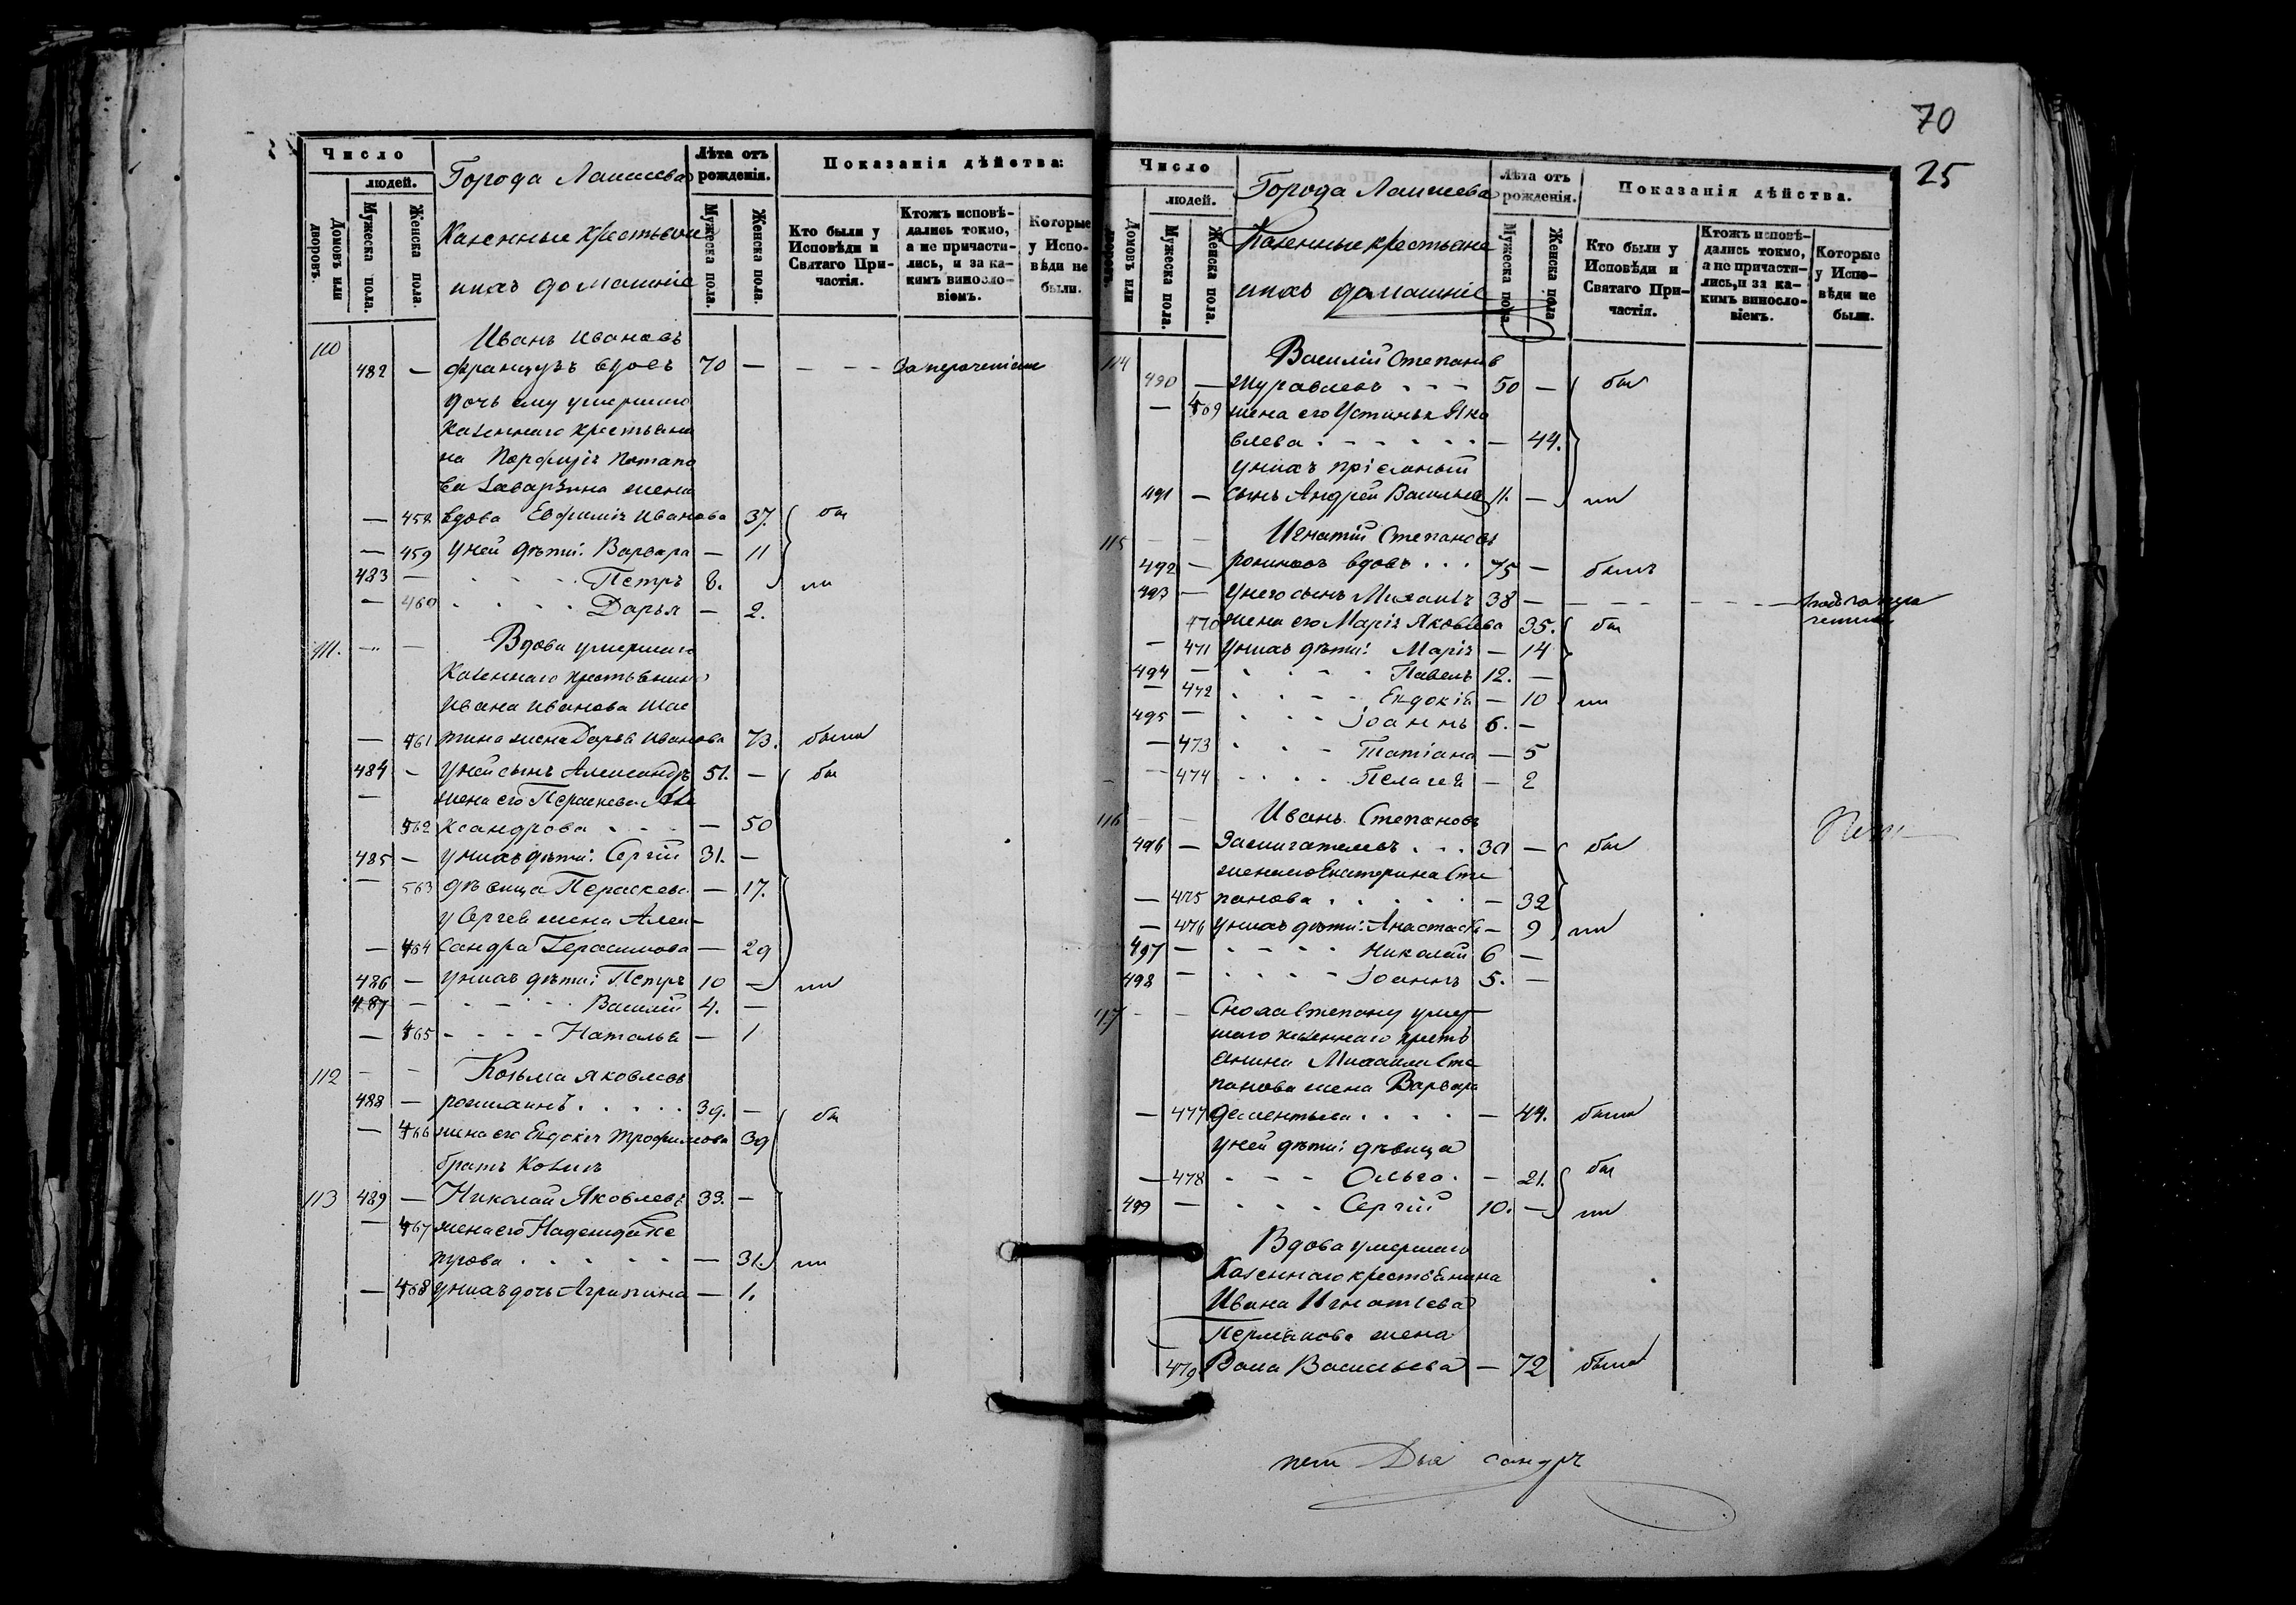 Число
людей.
Домовъ или дворовъ.
Мужеска пола.
Женска пола.
Города Лаишева
Казенные крестьяне
ихъ домашніе
Лѣта отъ рожденія.
Мужеска пола.
Женска пола.
Показанія дѣйства:
Кто были у Исповѣди и Святаго Причастія.
Ктожъ исповѣдались токмо, а не причастились, и за какимъ винословіемъ.
Которые у Исповѣди не были.
110
Иванъ Ивановъ
482 — французъ вдовъ 70 — — — —
дочь ему умершаго
Казеннаго крестьяни
на Порфирія Потапо
ва жена
— 458 вдова Евфимія Иванова 37. бы
— 459 У ней дѣти: Варвара — 11
483 — Петръ 8. ли
— 460 Дарья — 2.
111. — — Вдова умершаго
Казеннаго крестьянина
Ивана Иванова
— 461 тина жена Дарья Иванова 73. была
484 — У ней сынъ Александръ 51. — бы
— жена его Параскева Але
462 ксандрова — 50
485 — У нихъ дѣти: Сергій 31. —
— 563 дѣвица Параскева — 17.
у Сергея жена Алек-
— 464 сандра Герасимова — 29
486 — У нихъ дѣти: Петръ 10 — ли
487 — Василій 4. —
— 465 Наталья — 1
112 — — Козьма Яковлевъ
488 — 39. —
— 466 жена его Евдокія Трофимова 39 бы
братъ Козьмѣ
113 489 — Николай Яковлевъ 33. —
— 467 жена его Надежда Пе
трова — 31. ли
— 468 У нихъ дочь Агрипина — 1.
70
25
Число
людей.
Домовъ или дворовъ.
Мужеска пола.
Женска пола.
Города Лаишева
Казенные крестьяне
ихъ домашніе
Лѣта отъ рожденія.
Мужеска пола.
Женска пола
Показанія дѣйства.
Кто были у Исповѣди и Святаго Причастія.
Ктожъ исповѣдались токмо, а не причастились, и за какимъ винословіемъ.
Которые у Исповѣди не были.
114 Василій Степановъ
490 — Журавлевъ 50 — бы
— 469 жена его Устинья Яко
влева — 44.
у нихъ пріемный
491 — сынъ Андрей Васильевъ 11. — ли
115 — — Игнатій Степановъ
492 — вдовъ 75 — былъ
493 — У него сынъ Михаилъ 38 —
470 жена его Марія Яковлева 35. бы
— 471 У нихъ дѣти: Марія — 14
494 — Павелъ 12. —
— 472 Евдокія — 10 ли
495 — Іоаннъ 6. —
— 473 Татіана — 5
— 474 Пелагея — 2
116 — — Иванъ Степановъ
496 — Зажигателевъ 30 — бы
жена его Екатерина Сте
— 475 панова — 32
— 476 У нихъ дѣти: Анастасія — 9 ли
497 — Николай 6 —
498 — Іоаннъ 5. —
117 — — Сноха Степану умер
шаго казеннаго кресть
янина Михаила Сте
панова жена Варвара
— 477 Дементьева — 44. была
У ней дѣти: дѣвица
— 478 Ольга. — 21. бы
499 — Сергій 10. — ли
Вдова умершаго
Казеннаго крестьянина
Ивана Игнатьева
жена
479 Васильева — 72 была